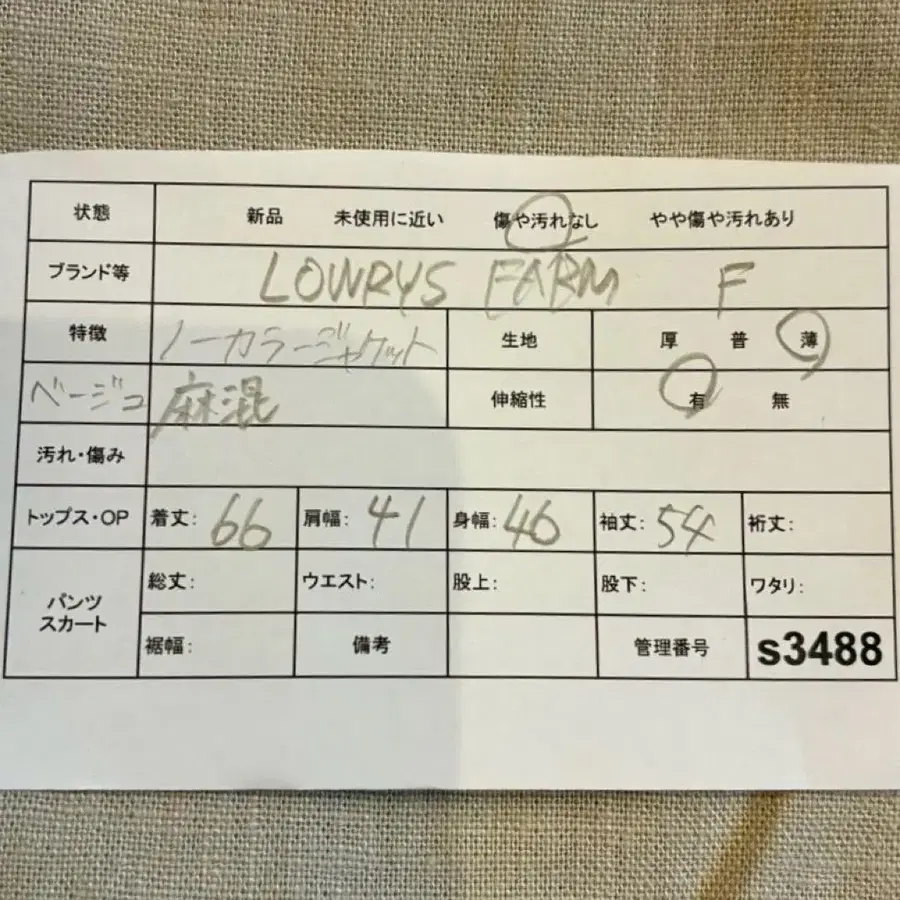 状態 新品 未使用に近い 傷や汚れなし やや傷や汚れあり
ブランド等 LOWRYS FARM F
特徴 ノーカラージャケット 生地 厚 普 薄
ベージュ 麻混 伸縮性 有 無
汚れ・傷み
トップス・OP 着丈: 66 肩幅: 41 身幅: 46 袖丈: 54 裄丈:
パンツ スカート 総丈: ウエスト: 股上: 股下: ワタリ:
裾幅: 備考 管理番号 s3488